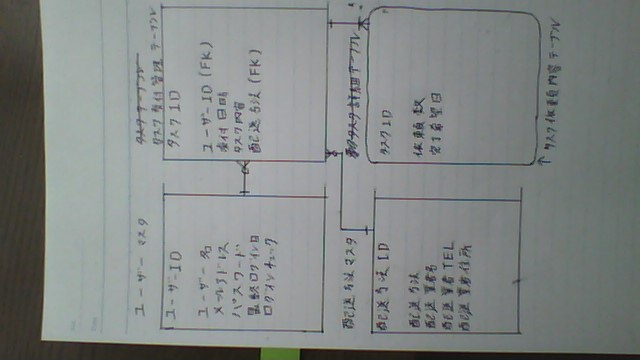 ユーザー マスタ
ユーザーID
ユーザー名
メールアドレス
パスワード
最終ログイン日
ログインチェック
タスクテーブル
タスク受付管理テーブル
タスクID
ユーザーID(FK)
受付日時
タスク内容
配送方法(FK)
配送方法マスタ
配送方法ID
配送方法
配送業者名
配送業者TEL
配送業者住所
タスク詳細テーブル
タスクID
依頼数
完了希望日
↑タスク依頼内容テーブル